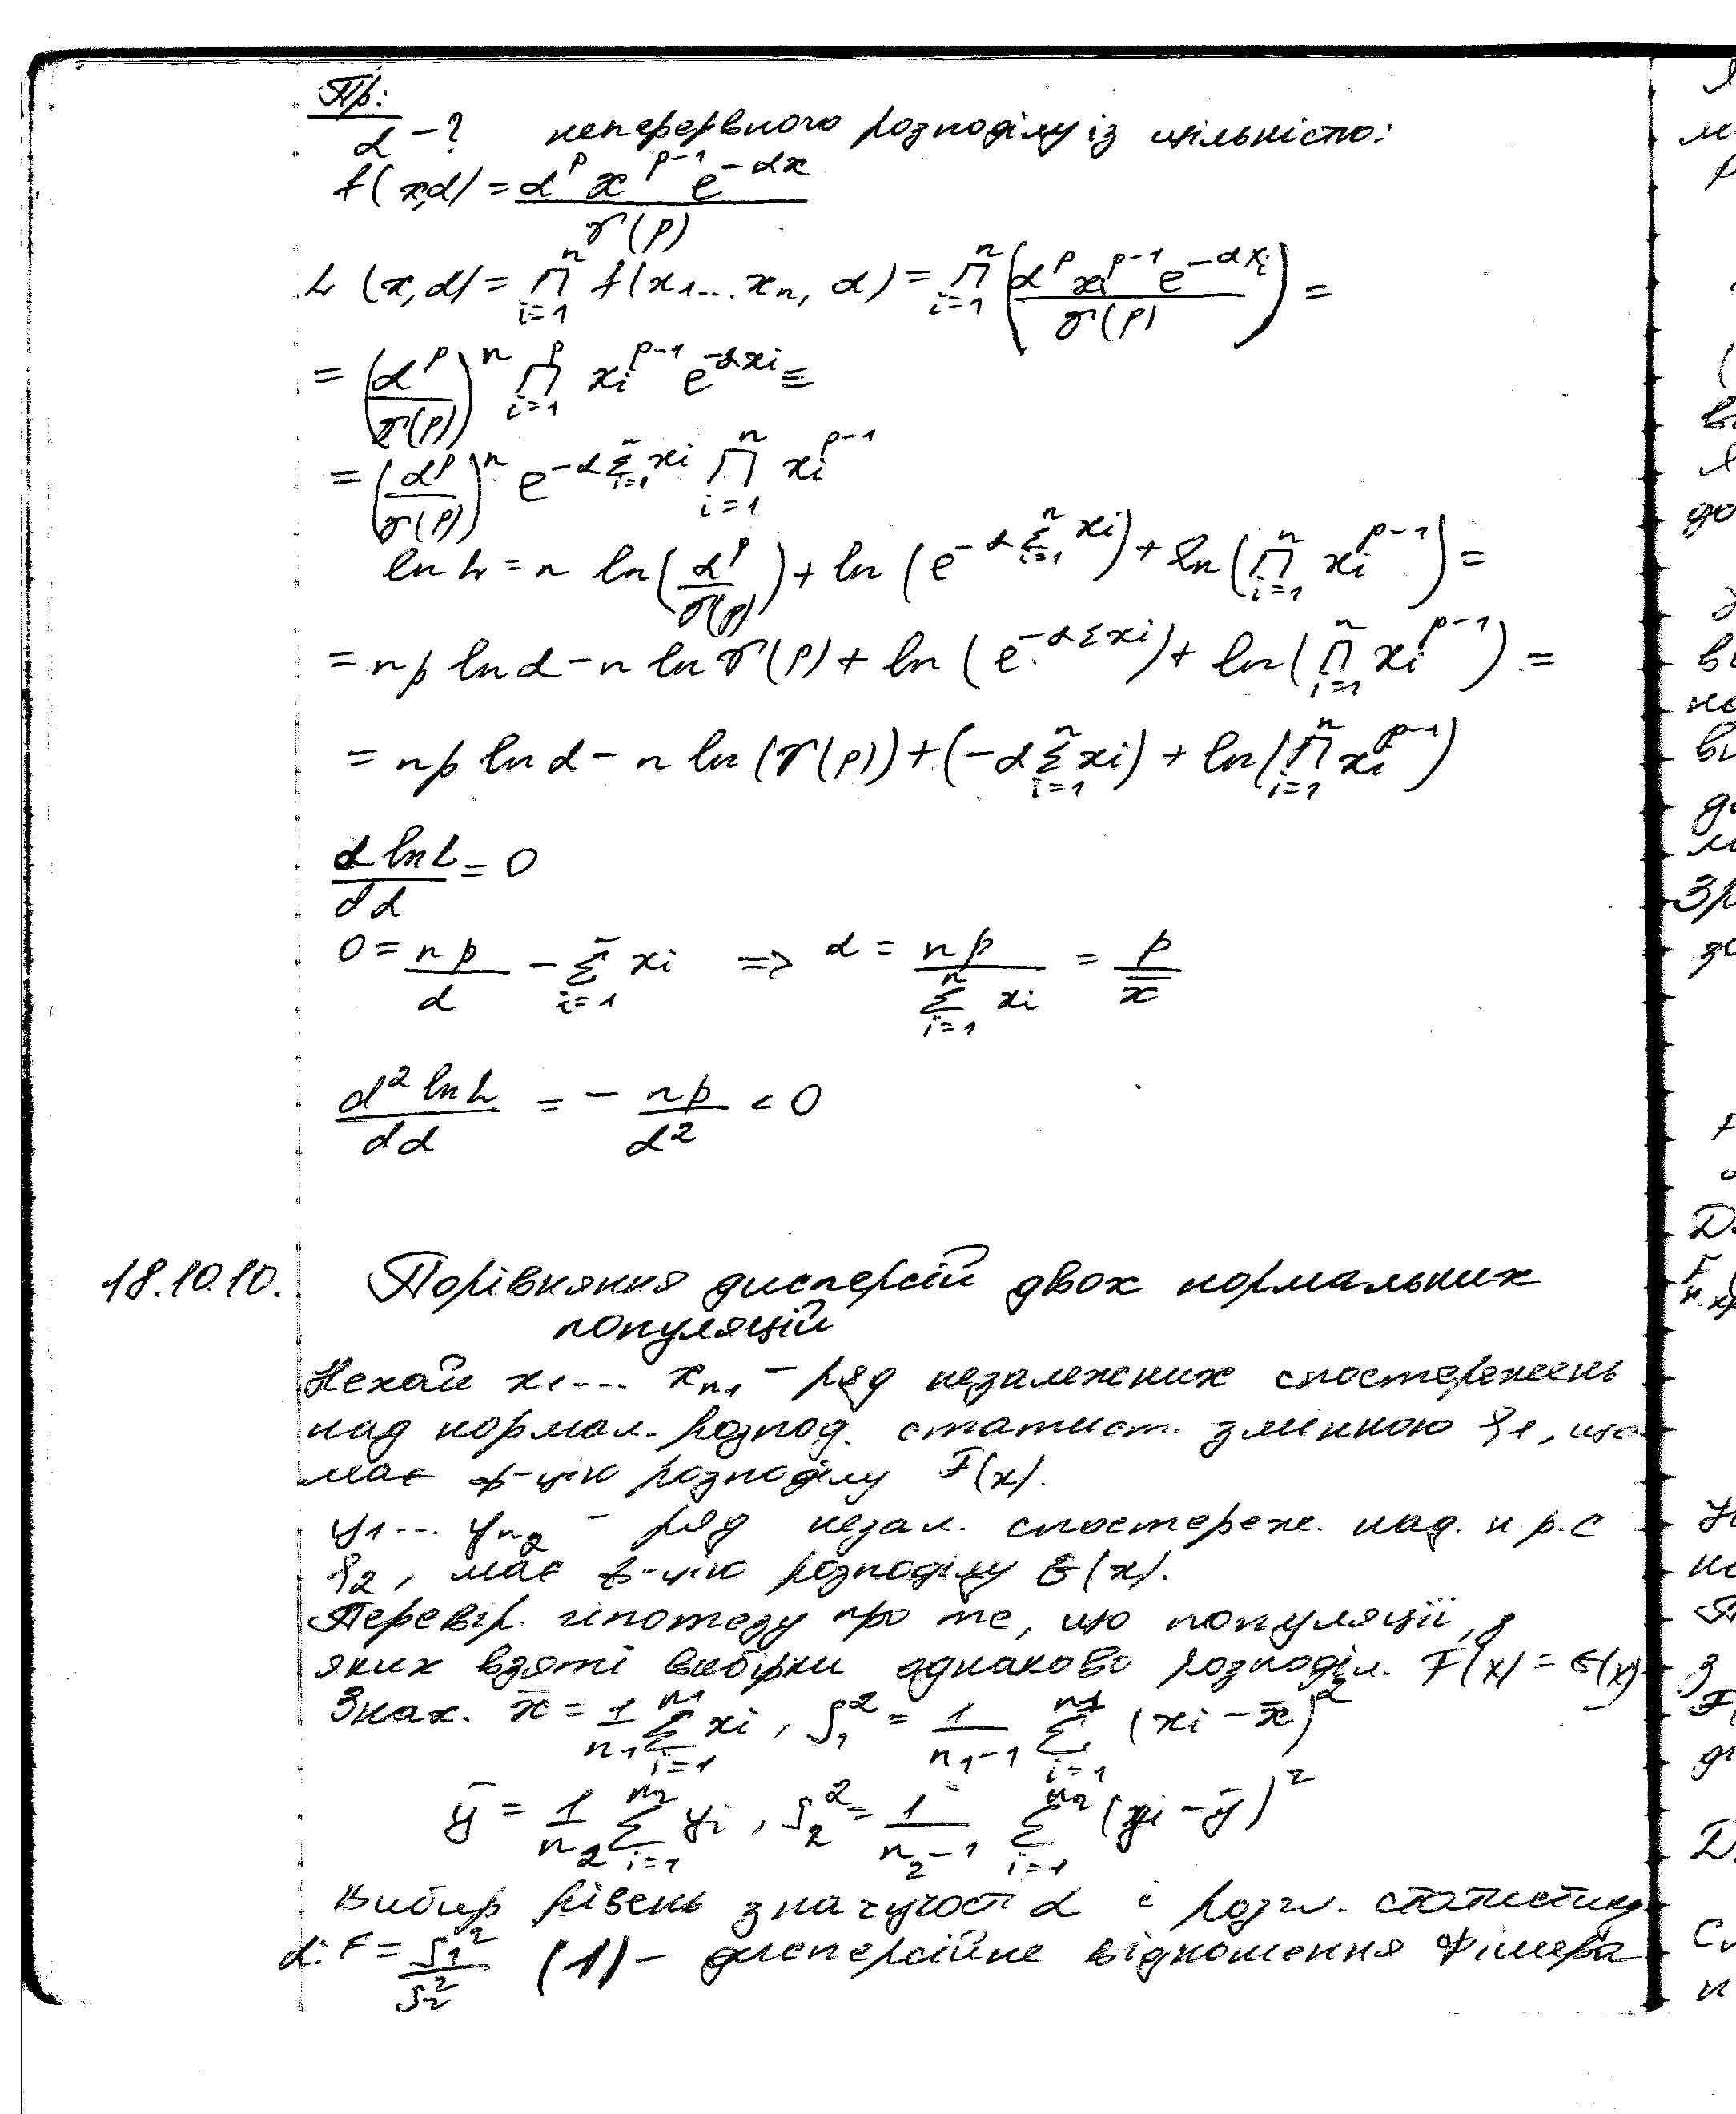 Пр:
α - ? неперервного розподілу із щільністю:
f(x,α) = α^p x^(p-1) e^(-αx) / γ(p)
L (x,α) = ∏_{i=1}^{n} f(x1...xn, α) = ∏_{i=1}^{n} (α^p xi^(p-1) e^(-αxi) / γ(p)) =
= (α^p / γ(p))^n ∏_{i=1}^{p} xi^(p-1) e^(-αxi) =
= (α^p / γ(p))^n e^(-α∑_{i=1}^{n} xi) ∏_{i=1}^{n} xi^(p-1)
ln L = n ln(α^p / γ(p)) + ln (e^(-α∑_{i=1}^{n} xi)) + ln(∏_{i=1}^{n} xi^(p-1)) =
= np ln α - n ln γ(p) + ln (e^(-α∑xi)) + ln(∏_{i=1}^{n} xi^(p-1)) =
= np ln α - n ln (γ(p)) + (-α∑_{i=1}^{n} xi) + ln(∏_{i=1}^{n} xi^(p-1))
d ln L / dα = 0
0 = np / α - ∑_{i=1}^{n} xi => α = np / ∑_{i=1}^{n} xi = p / x̄
d² ln L / dα = - np / α² < 0
18.10.10. Порівняння дисперсій двох нормальних
популяцій
Нехай x1... xn1 - ряд незалежних спостережень
над нормал. розпод. статист. змінною ξ1, що
має ф-цію розподілу F(x).
y1... yn2 - ряд незал. спостереж. над. н р. с
ξ2, має ф-цію розподілу G(x).
Перевір. гіпотезу про те, що популяції, з
яких взяті вибірки однаково розподіл. F(x) = G(x)
Знах. x̄ = 1/n1 ∑_{i=1}^{n1} xi, S1² = 1/(n1-1) ∑_{i=1}^{n1} (xi - x̄)²
ȳ = 1/n2 ∑_{i=1}^{n2} yi, S2² = 1/(n2-1) ∑_{i=1}^{n2} (yi - ȳ)²
Вибир рівень значущост α і розгл. статистику
α: F = S1² / S2² (1) - дисперсійне відношення Фішера